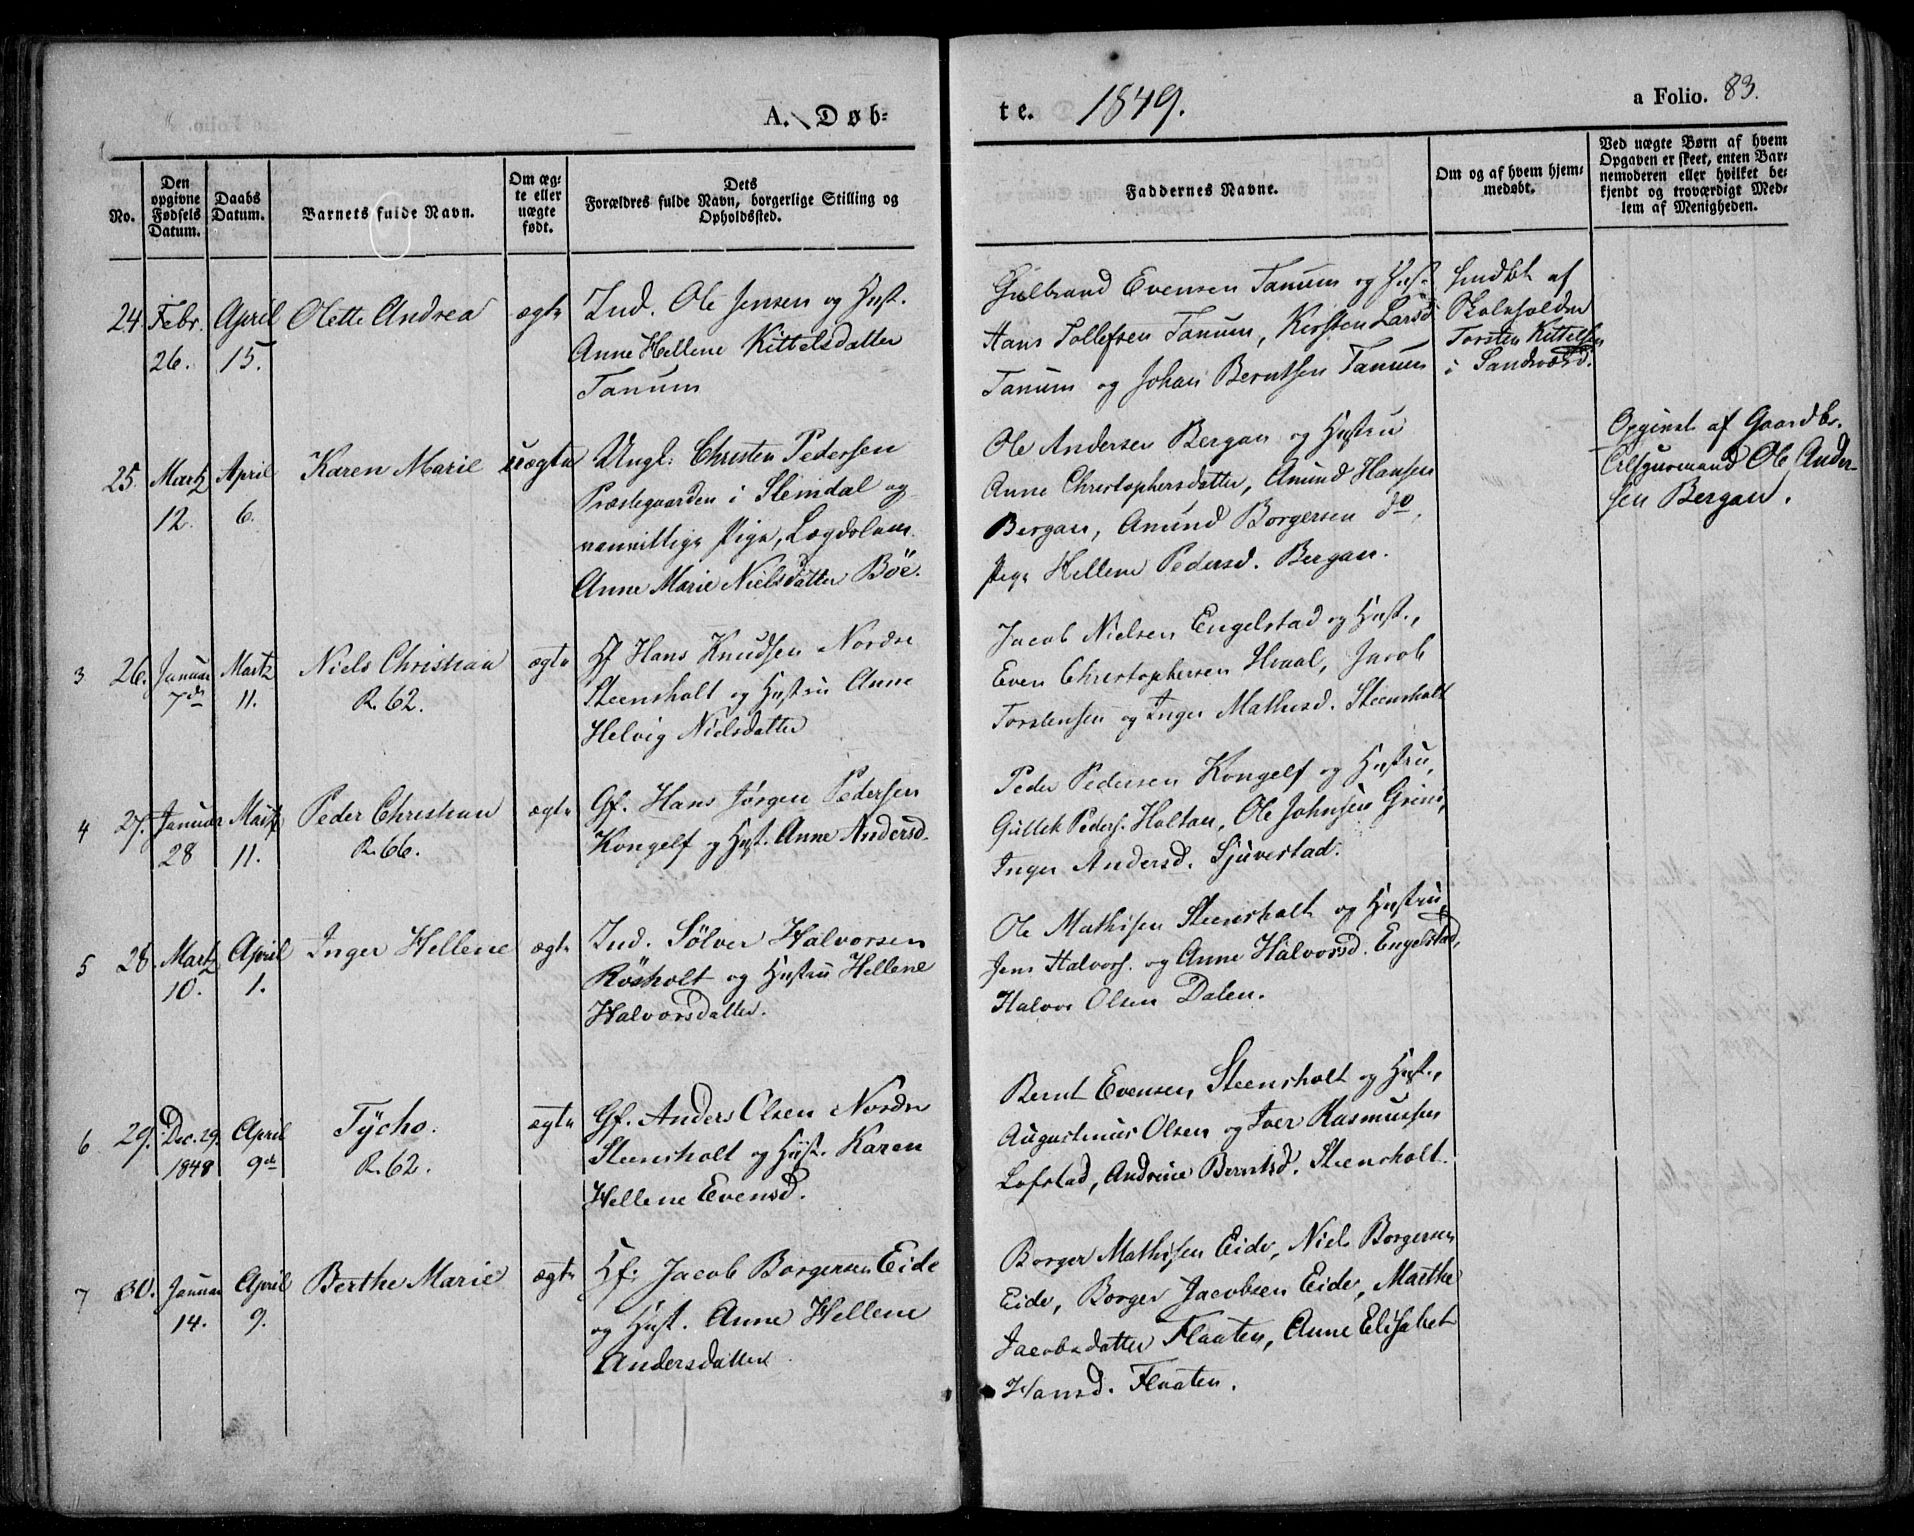 A. Døb-
te. 1849.
a Folio. 83.
No.
Den opgivne Fødsels Datum.
Daabs Datum.
Barnets fulde Navn.
Om ægte eller uægte født.
Dets
Forældres fulde Navn, borgerlige Stilling og
Opholdssted.
Faddernes Navne.
Om og af hvem hjem-
medøbt.
Ved uægte Børn af hvem
Opgaven er skeet, enten Bar-
nemoderen eller hvilket be-
kjendt og troværdigt Med-
lem af Menigheden.
24. Febr. 26. April 15. Olette Andrea ægte
Ind. Ole Jensen og Hust.
Anne Hellene Kittelsdatter
Tanum
Gulbrand Evensen Tanum og Hust.
Hans Tollefsen Tanum, Kirsten Larsd
Tanum og Johan Berntsen Tanum
hmdbt af
Skoleholder
Torsten Kittelsen
i Sandsværd.
25. Martz 12. April 6. Karen Marie uægte
Ungk. Christen Pedersen
Præstegaarden i Slemdal og
vanvittige Pige, Lægdslem
Anne Marie Nielsdatter Böe.
Ole Andersen Bergan og Hustru
Anne Christophersdatter, Amund Hansen
Bergan, Amund Borgersen do,
Pige Hellene Pedersd. Bergan.
Opgivet af Gaardbr.
Ole Ander-
sen Bergan.
3 26. Januar 7de Martz 11. Niels Christian R. 62. ægte
Gf Hans Knudsen Nordre
Steensholt og Hustru Anne
Helvig Nielsdatter
Jacob Nielsen Engelstad og Hust.,
Even Christophersen Hvaal, Jacob
Torstensen og Inger Mathisd. Steensholt
4 27. Januar 28 Martz 11. Peder Christian R. 66. ægte
Gf. Hans Jörgen Pedersen
Kongelf og Hust. Anne Andersd.
Peder Pedersen Kongelf og Hustru,
Gullek Peders. Holtan, Ole Johnsen Grini,
Inger Andersd. Sjuvestad.
5 28. Martz 10. April 1. Inger Hellene ægte
Ind. Sölver Halvorsen
Rösholt og Hustru Hellene
Halvorsdatter.
Ole Mathisen Steensholt og Hustru,
Jens Halvors. og Anne Halvorsd. Engelstad,
Halvor Olsen Dalen.
6 29. Dec. 29. 1848 April 9de Tÿcho. R. 62. ægte
Gf. Anders Olsen Nordre
Steensholt og Hust. Karen
Hellene Evensd.
Bernt Evensen, Steensholt og Hust.,
Augustinus Olsen og Iver Rasmussen
Lofstad, Andrine Berntsd. Steensholt.
7 30. Januar 14. April 9. Berthe Marie ægte
Hf. Jacob Borgersen Eide
og Hust. Anne Hellene
Andersdatter
Borger Mathisen Eide, Niels Borgersen
Eide, Borger Jacobsen Eide, Marthe
Jacobsdatter Flaaten, Anne Elisabet
Hansd. Flaaten.